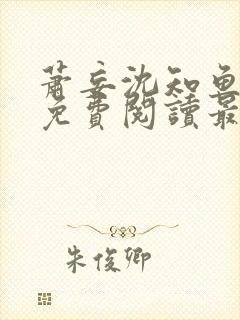 蕭妄沈知魚
免費閱讀最
朱俊卿